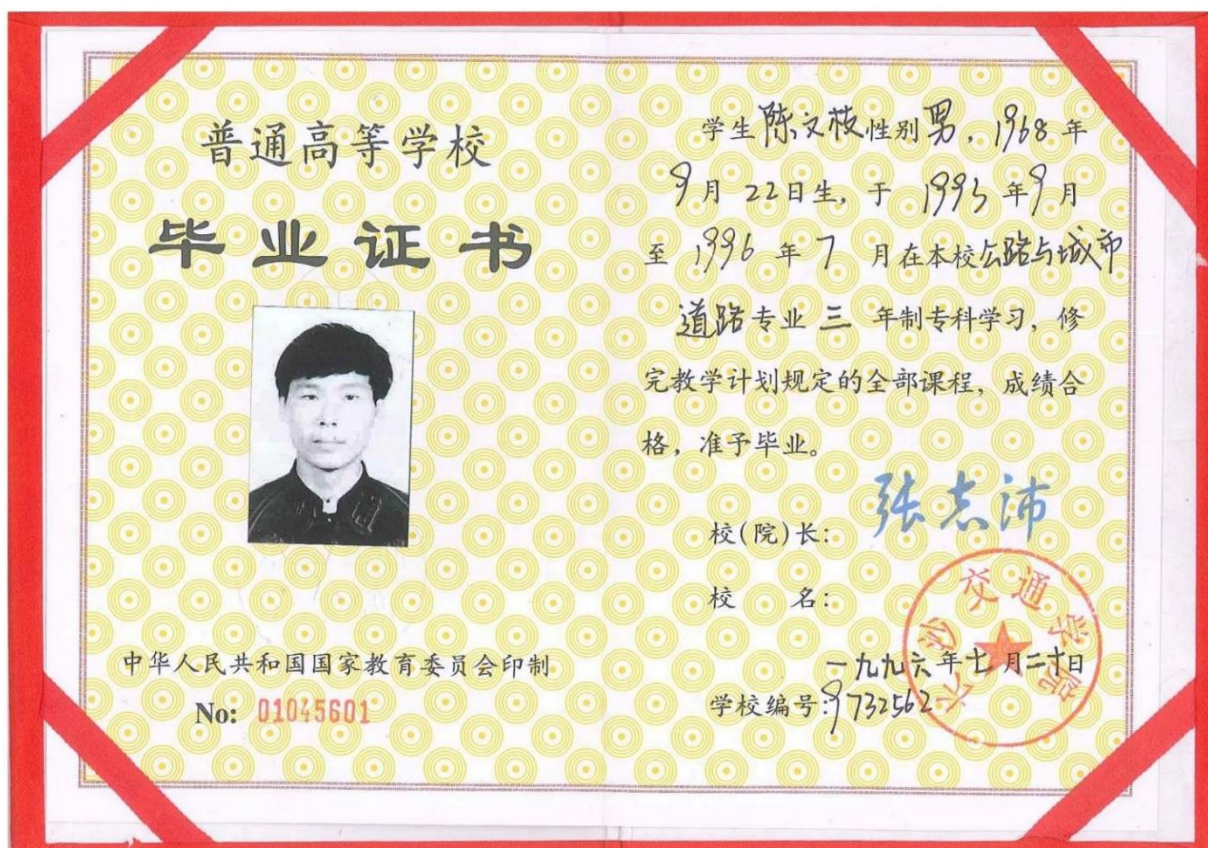 普通高等学校
毕业证书
中华人民共和国国家教育委员会印制
No: 01045601
学生陈文枝性别男,1968年
9月22日生,于1993年9月
至1996年7月在本校公路与城市
道路专业三年制专科学习,修
完教学计划规定的全部课程,成绩合
格,准予毕业。
校(院)长: 张志沛
校 名:
长沙交通学院
一九九六年七月二十日
学校编号:9732562